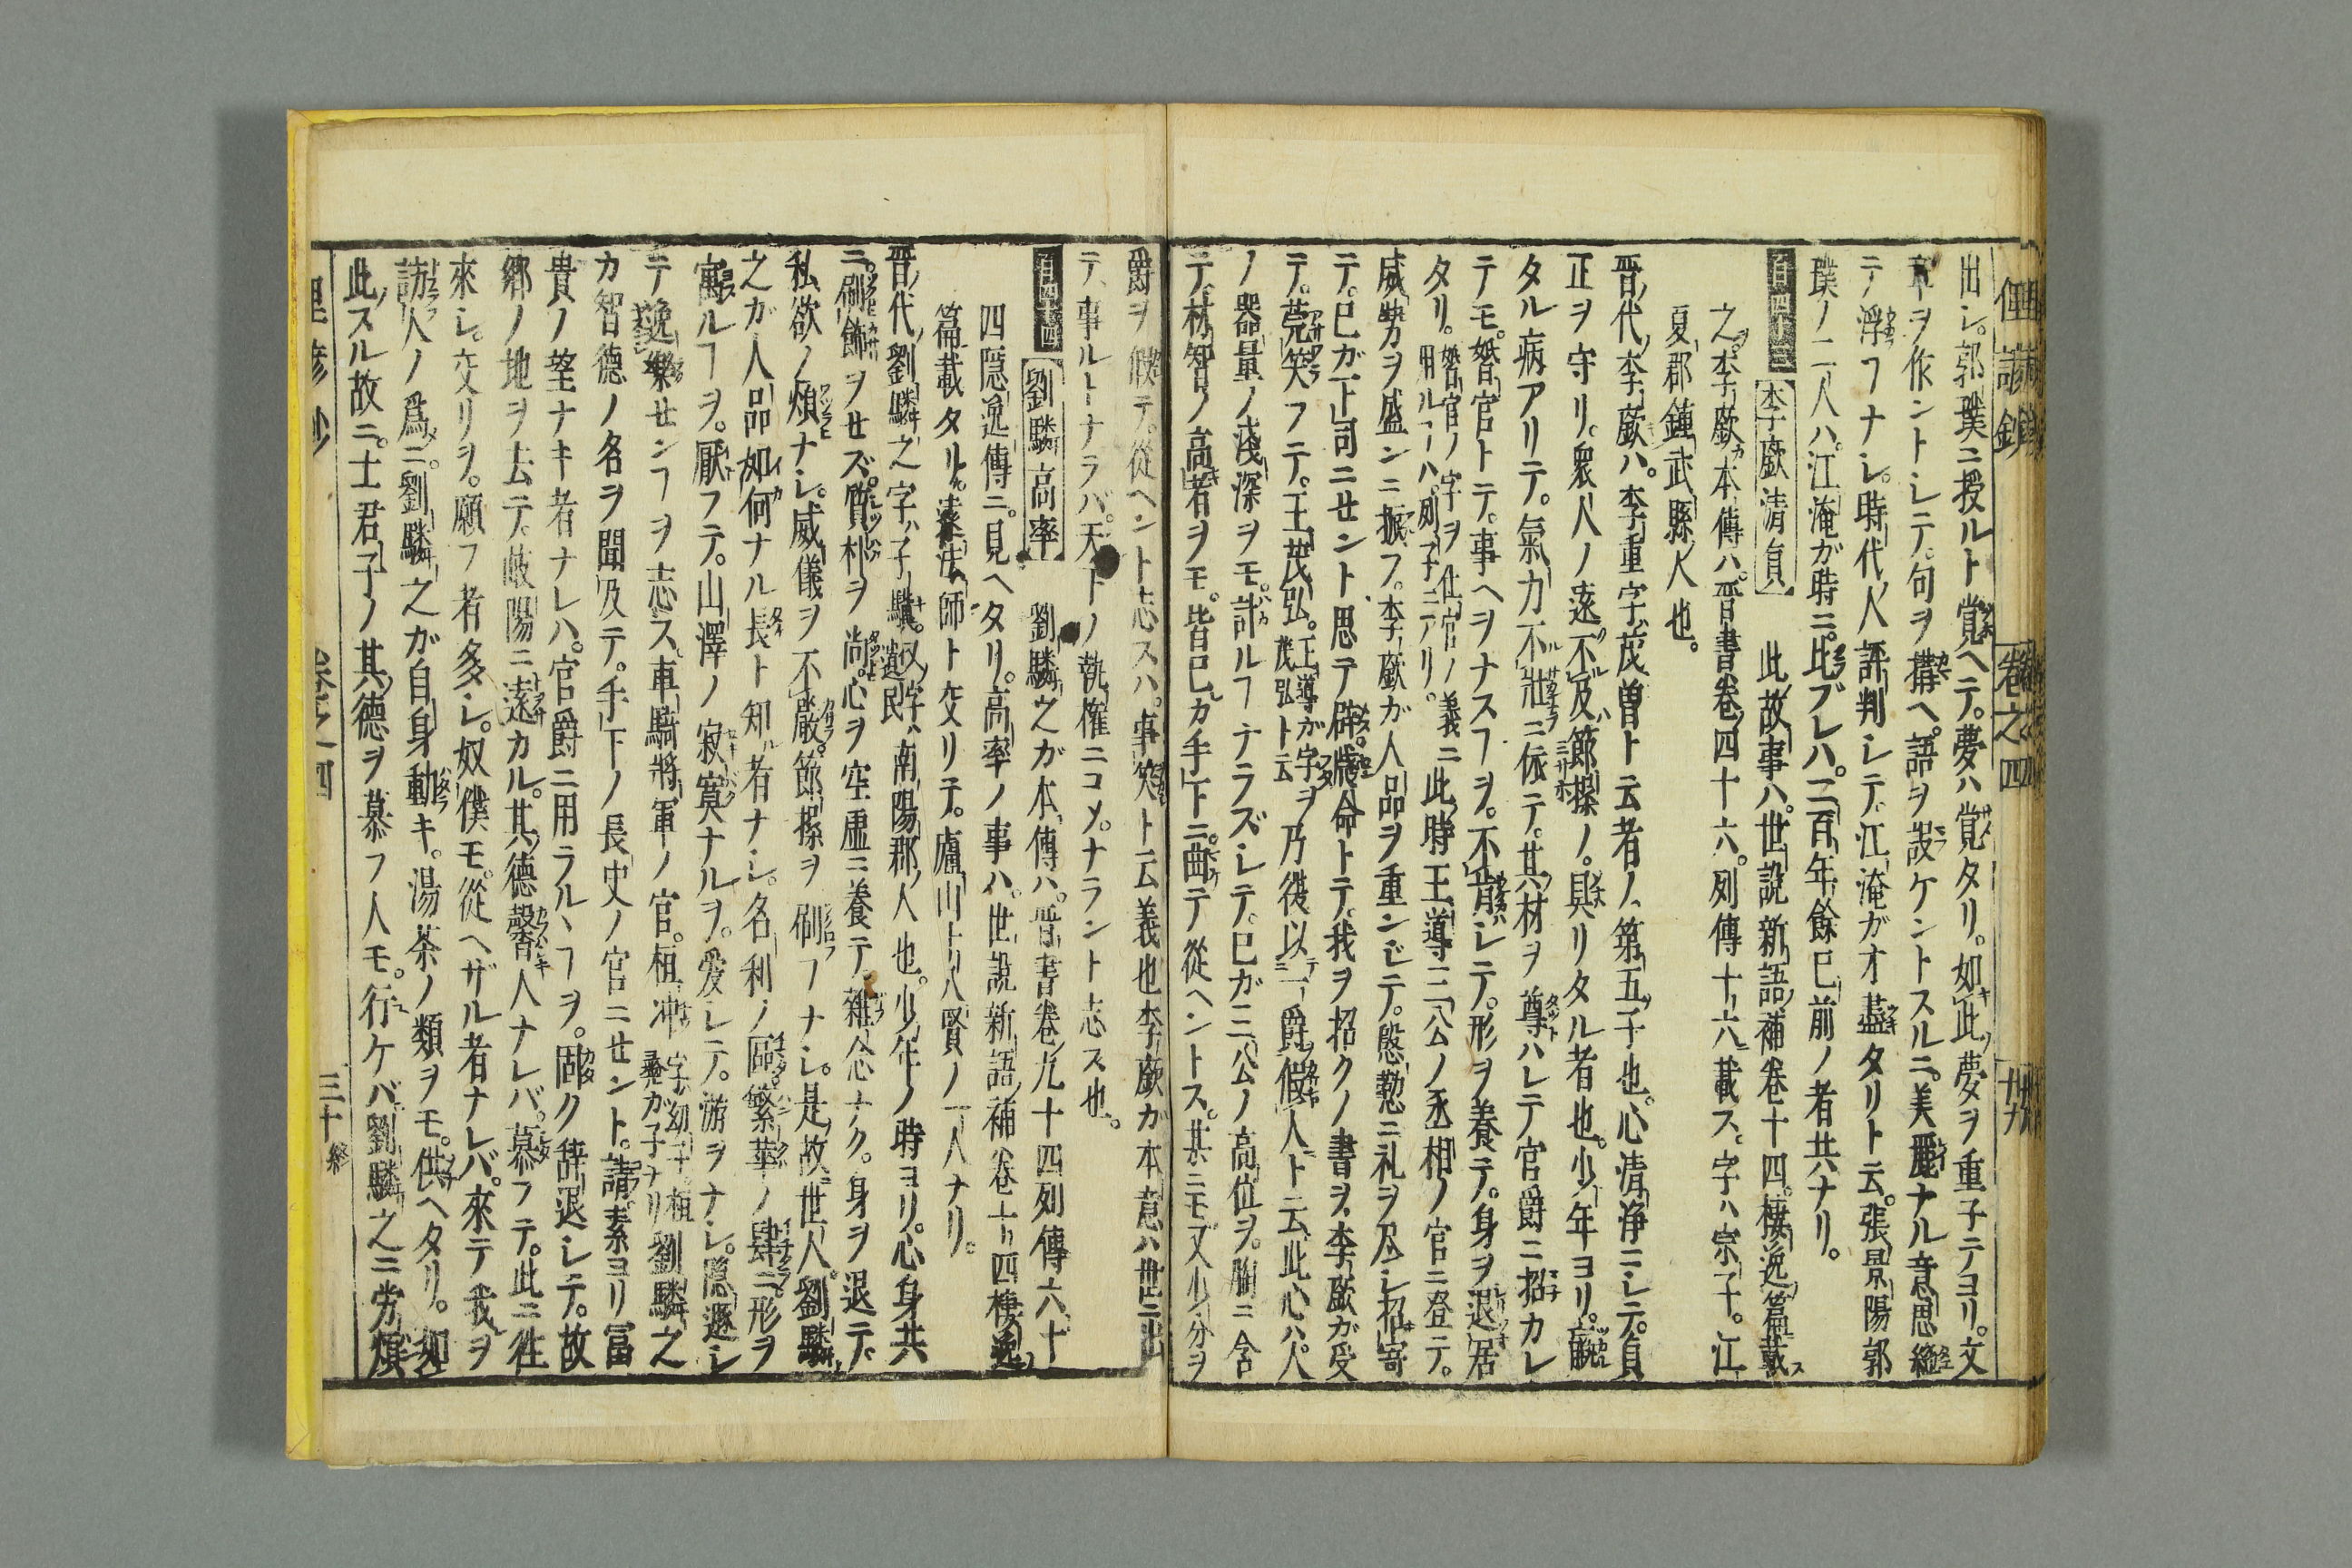 出シ。郭璞ニ授ルト覚ヘテ。夢ハ覚タリ。如此夢ヲ重子テヨリ。文
章ヲ作ントシテ。句ヲ搆ヘ。語ヲ設ケントスルニ。美麗ナル意思絶
テ浮フナシ。時代ノ人評判シテ江淹ガオ盡タリト云。張景陽郭
璞ノ二人ハ。江淹ガ時ニ。比ブレハ。二百年餘已前ノ者共ナリ。
百四十三 李廞清貞 此故事ハ。世説新語補卷十四。棲逸篇ニ載ス
之。李廞本傳ハ。晋書卷四十六。列傳十六ニ載ス。字ハ宗子。江
夏郡鍾武縣ノ人也。
晋代李廞ハ。李重字茂曽ト云者ノ第五ノ子也。心清浄ニシテ。貞
正ヲ守リ。衆人ノ遠不及節操ノ。具リタル者也。少年ヨリ。
タル病アリテ。氣力不壯ニ依テ。其材ヲ尊ハレテ官爵ニ招カレ
テモ。婚官トテ。事ヘヲナスフヲ。不肯シテ。形ヲ養テ。身ヲ退居
タリ。婚官ノ字ヲ仕官ノ義ニ用ルフハ。列子ニアリ。此時王導三公ノ丞相ノ官ニ登テ。
威勢ヲ盛ンニ振フ。李廞ガ人品ヲ重ンジテ。慇懃ニ礼ヲ及シ招寄
テ。已ガ下司ニセント思テ辟。牋命トテ。我ヲ招クノ書ヲ。李廞ガ受
テ。莞笑フテ。王茂弘。王導ガ字ヲ茂弘ト云 乃復以一爵假人ト云。此心ハ。人
ノ器量ノ淺深ヲモ。計ルフナラズシテ。已ガ三公ノ高位ヲ。胸ニ含
テ。材智ノ高者ヲモ。皆已カ手下ニ。曲テ從ヘントス。其ニモ又少分ヲ
爵ヲ假テ。從ヘント志スハ。事笑ト云義也李廞ガ本意ハ世ニ出
テ、事ルトナラバ。天下ノ執權ニコメ。ナラント志ス也。
百四十四 劉驎高率 劉驎之ガ本傳ハ。晋書卷九十四列傳六十
四隠逸傳ニ。見ヘタリ。高率ノ事ハ。世説新語補卷十四棲逸
篇載タル。遠法師ト交リテ。廬山十八賢ノ一人ナリ。
晋代劉驎之字ハ子驥。又字ハ遺民南陽郡ノ人也。少年ノ時ヨリ。心身共
ニ。刷飾ヲセズ。質朴ヲ尚。心ヲ空虚ニ養テ。雜念ナク。身ヲ退テ。
私欲ノ煩ナシ。威儀ヲ不嚴。節操ヲ刷フナシ。是故世人劉驎
之ガ人品如何ナル長ト知ル者ナシ。名利ノ區繁華ノ肆ニ。形ヲ
寓ルフヲ。厭フテ。山澤ノ寂寞ナルヲ。愛シテ。游ヲナシ。隠遯シ
テ逸樂センフヲ志ス。車騎將軍ノ官。桓冲字幼子。桓彝ガ子ナリ劉驎之
カ智德ノ名ヲ聞及テ。手下ノ長史ノ官ニセント。請。素ヨリ冨
貴ノ望ナキ者ナレハ。官爵ニ用ラルヽフヲ。固ク辞退シテ。故
郷ノ地ヲ去テ。岐陽ニ遠カル。其德馨人ナレバ。慕フテ。此ニ往
來シ。交リヲ。願フ者多シ。奴僕モ。從ヘザル者ナレバ。來テ我ヲ
訪人ノ爲ニ。劉驎之ガ自身動キ。湯茶ノ類ヲモ。供ヘタリ。如
此スル故ニ。士君子ノ其德ヲ慕フ人モ。行ケバ劉驎之ニ労煩
卷之四
三十